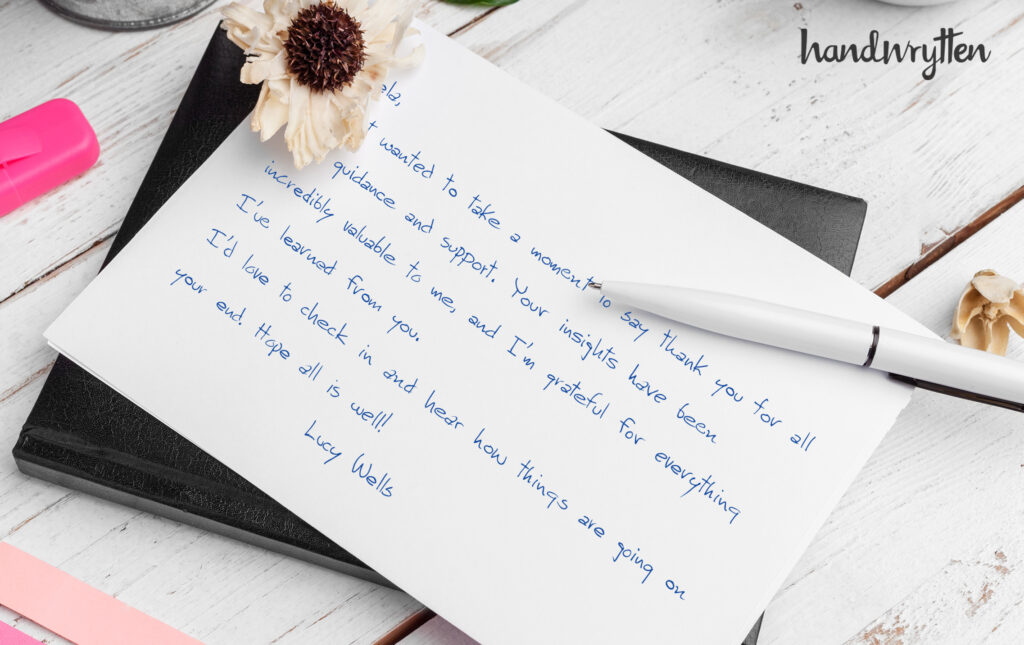 handwrytten
wanted to take a moment to say thank you for all
guidance and support. Your insights have been
incredibly valuable to me, and I'm grateful for everything
I've learned from you.
I'd love to check in and hear how things are going on
your end. Hope all is well!
Lucy Wells